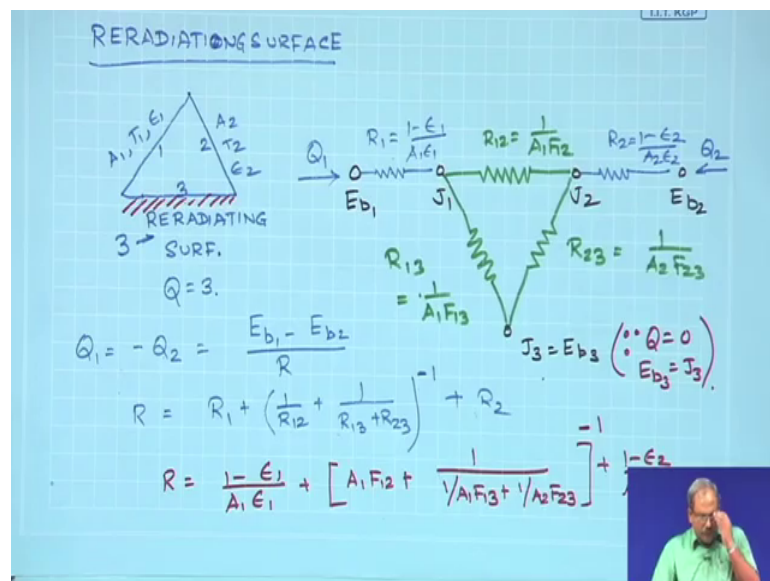 I.I.T. KGP
RERADIATIONG SURFACE
A1, T1, ϵ1
1
2
A2
T2
ϵ2
3
RERADIATING
3 → SURF.
Q = 3.
Q1
R1 = 1-ϵ1 / A1ϵ1
R12 = 1 / A1F12
R2 = 1-ϵ2 / A2ϵ2
Q2
Eb1
J1
J2
Eb2
R13 = 1 / A1F13
R23 = 1 / A2F23
J3 = Eb3 (∵ Q = 0
Eb3 = J3).
Q1 = - Q2 = Eb1 - Eb2 / R
R = R1 + (1/R12 + 1/R13 + R23)^-1 + R2
R = 1-ϵ1 / A1ϵ1 + [A1F12 + 1 / 1/A1F13 + 1/A2F23]^-1 + 1-ϵ2